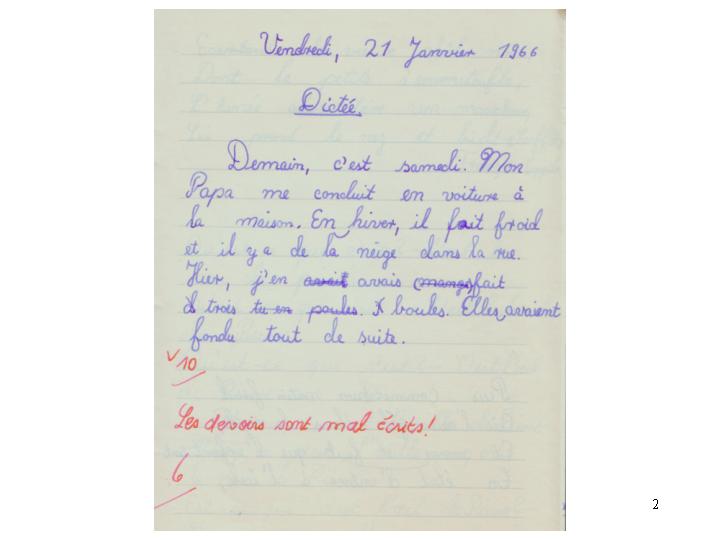 Vendredi, 21 Janvier 1966
Dictée.
Demain, c'est samedi. Mon
Papa me conduit en voiture à
la maison. En hiver, il fait froid
et il y a de la neige dans la rue.
Hier, j'en avait avais (mangé) fait
trois tu en poules. boules. Elles avaient
fondu tout de suite.
10
Les devoirs sont mal écrits!
6
2